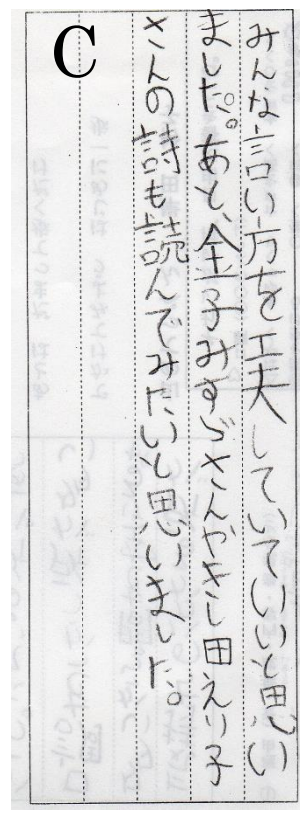 みんな言い方を工夫していていいと思い
ました。あと、金子みすゞさんやきし田えり子
さんの詩も読んでみたいと思いました。
C